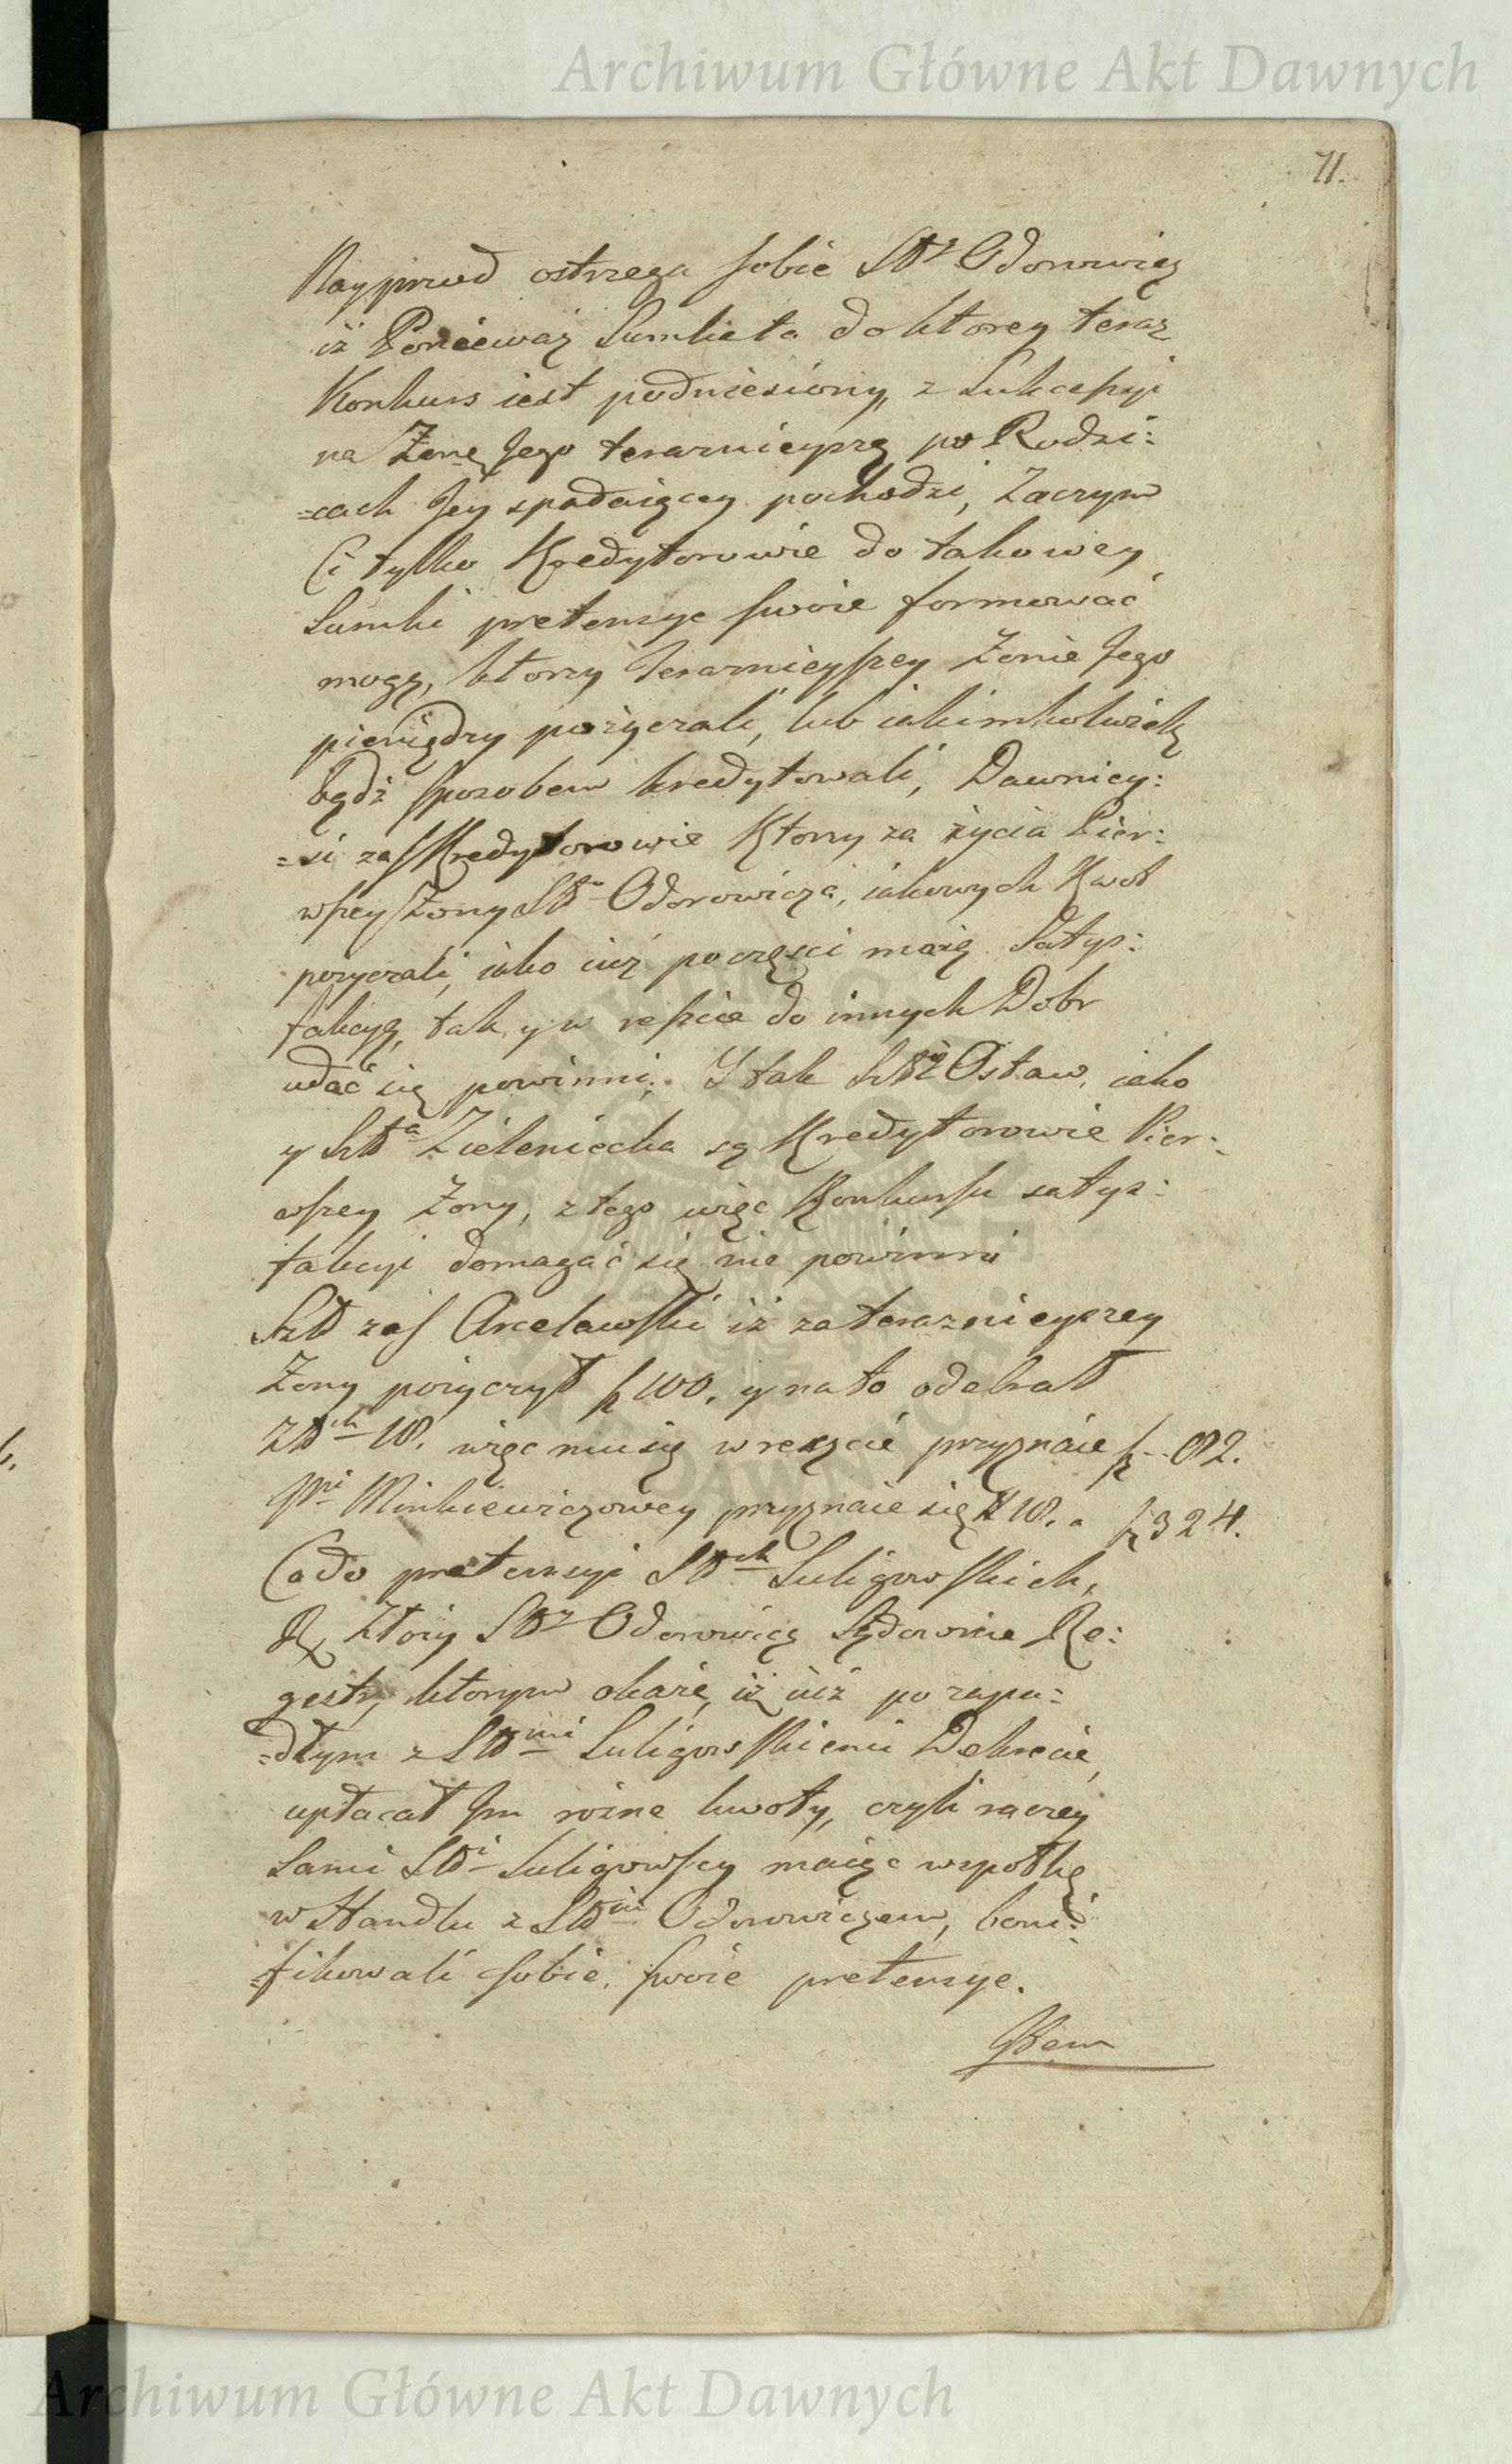 Archiwum Główne Akt Dawnych
71.
Nayprzod ostrzega sobie Sttz Odorowicz
iż Ponieważ Sumka ta do ktorey teraz
Konkurs iest podniesiony, z Sukcessyi
na Zonę Jego teraznieyszą po Rodzi:
=cach Jey spadaiącey pochodzi, Zaczym
Ci tylko Kredytorowie do takowey
Sumki pretensye swoie formować
mogą, ktorzy Teraznieyszey Zonie Jego
pieniądzy pożyczali, lub iakimkolwiek
bądź sposobem kredytowali, Dawniey:
=si zaś Kredytorowie Ktorzy za życia Pier:
wszey Zony Stto Odorowicza, iakowych Kwot
pozyczali, iako iuż poczęsci maią Satys:
fakcyą, tak y w reszcie do innych Dobr
udać się powinni. Y tak Ostaw, iako
y Sltta Zieleniecka są Kredytorowie Pier:
wszey Zony, z tego więc Konkursu satys:
fakcyi domagać się nie powinni
Szltt zaś Arcelawski iż za teraznieyszey
Zony pożyczył f 100. y na to odebrał
Ztt ch 18. więc mu się w reszcie przyznaie f -- 82.
Pni Minkiewiczowey przyznaie się # 18. a f 324.
Co do pretensyi Stt ch Suligowskich,
Złoży Sttz Odorowicz Sądownie Re:
gestr, ktorym okaże, iż iuż po zapa:
=dłym z Stt mi Suligowskiemi Dekrecie,
upłacał Im rożne kwoty, czyli raczey
Sami Stti Suligowscy maiąc wspołkę
w Handlu z Stt m Odorowiczem, boni:
=fikowali sobie swoie pretensye.
Archiwum Główne Akt Dawnych